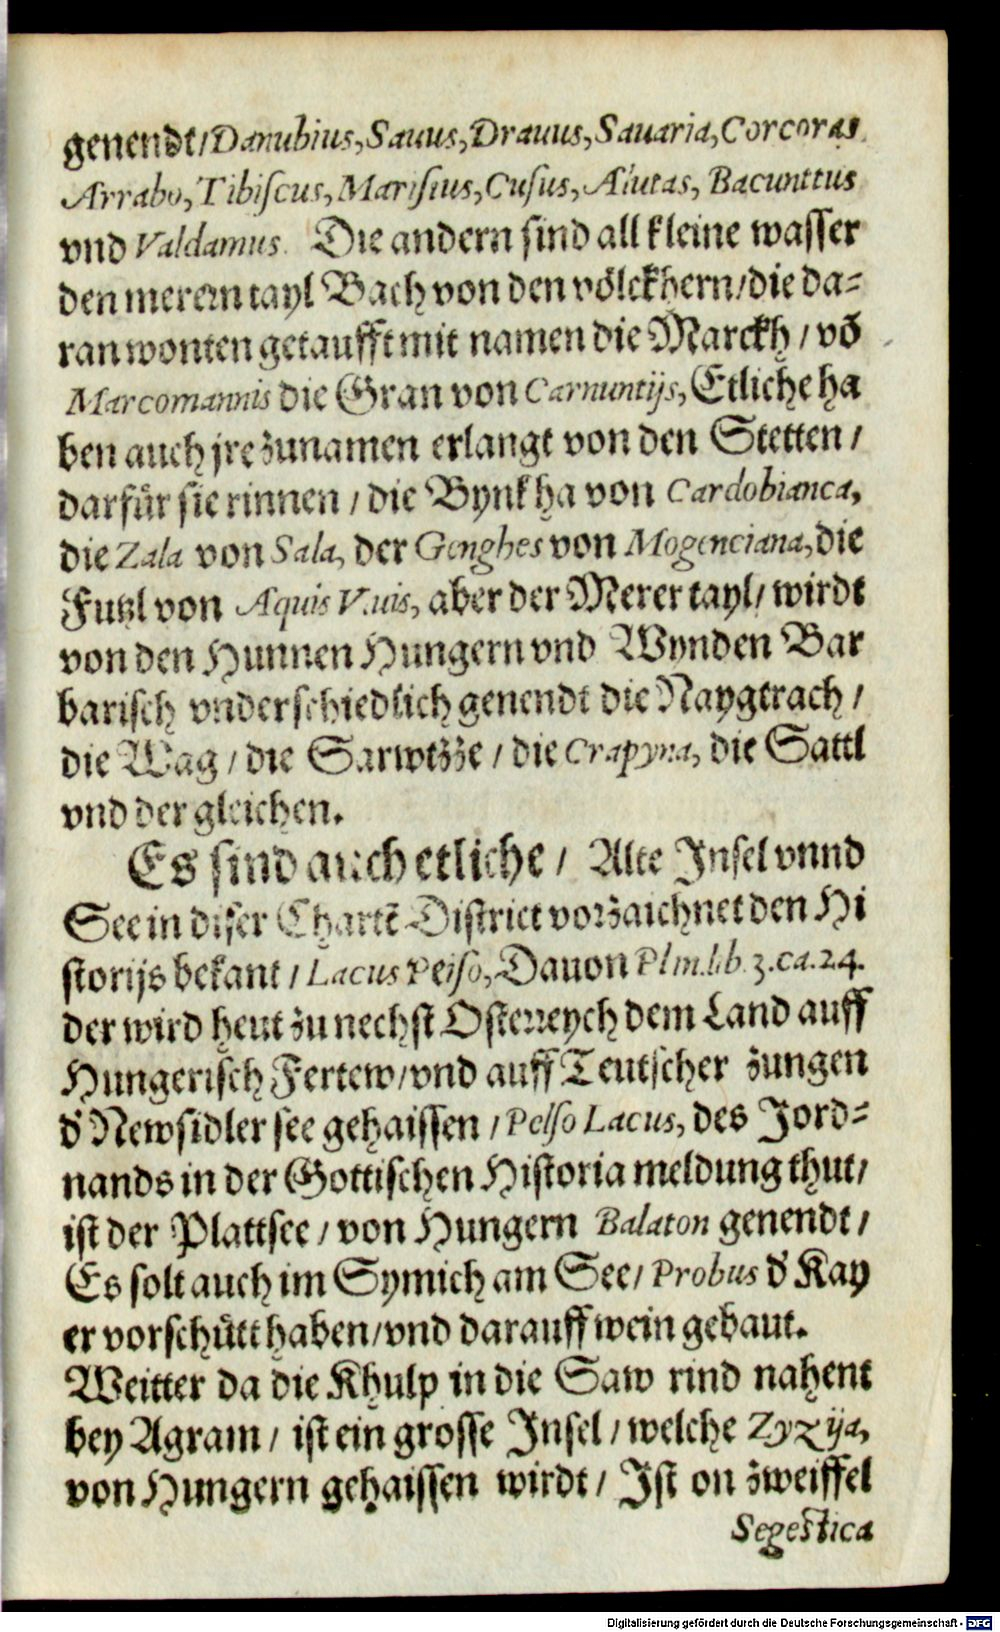 genendt/ Danubius, Sauus, Drauus, Sauaria, Corcoras
Arrabo, Tibiscus, Marisius, Cusus, Aiutas, Bacunttus
vnd Valdamus. Die andern sind all kleine wasser
den merern tayl Bach von den völckhern/ die da-
ran wonten getaufft mit namen die Marckh / võ
Marcomannis die Gran von Carnuntijs, Etliche ha
ben auch jre zunamen erlangt von den Stetten /
darfür sie rinnen / die Bynkha von Cardobianca,
die Zala von Sala, der Genghes von Mogenciana, die
Futzl von Aquis Viuis, aber der Merer tayl/ wirdt
von den Hunnen Hungern vnd Wynden Bar
barisch vnderschiedlich genendt die Naygtrach /
die Wag / die Sarwtzze / die Crapyna, die Sattl
vnd der gleichen.
Es sind auch etliche / Alte Insel vnnd
See in diser Chartẽ District vorzaichnet den Hi
storijs bekant / Lacus Peiso, Dauon Plin. lib. 3. ca. 24.
der wird heut zu nechst Osterreych dem Land auff
Hungerisch Fertew/ vnd auff Teutscher zungen
d' Newsidler see gehaissen / Pelso Lacus, des Jord-
nands in der Gottischen Historia meldung thut/
ist der Plattsee / von Hungern Balaton genendt /
Es solt auch im Symich am See/ Probus d' Kay
er vorschütt haben/ vnd darauff wein gebaut.
Weitter da die Khulp in die Saw rind nahent
bey Agram / ist ein grosse Insel / welche Zyzija,
von Hungern gehaissen wirdt / Ist on zweiffel
Segestica
Digitalisierung gefördert durch die Deutsche Forschungsgemeinschaft - DFG